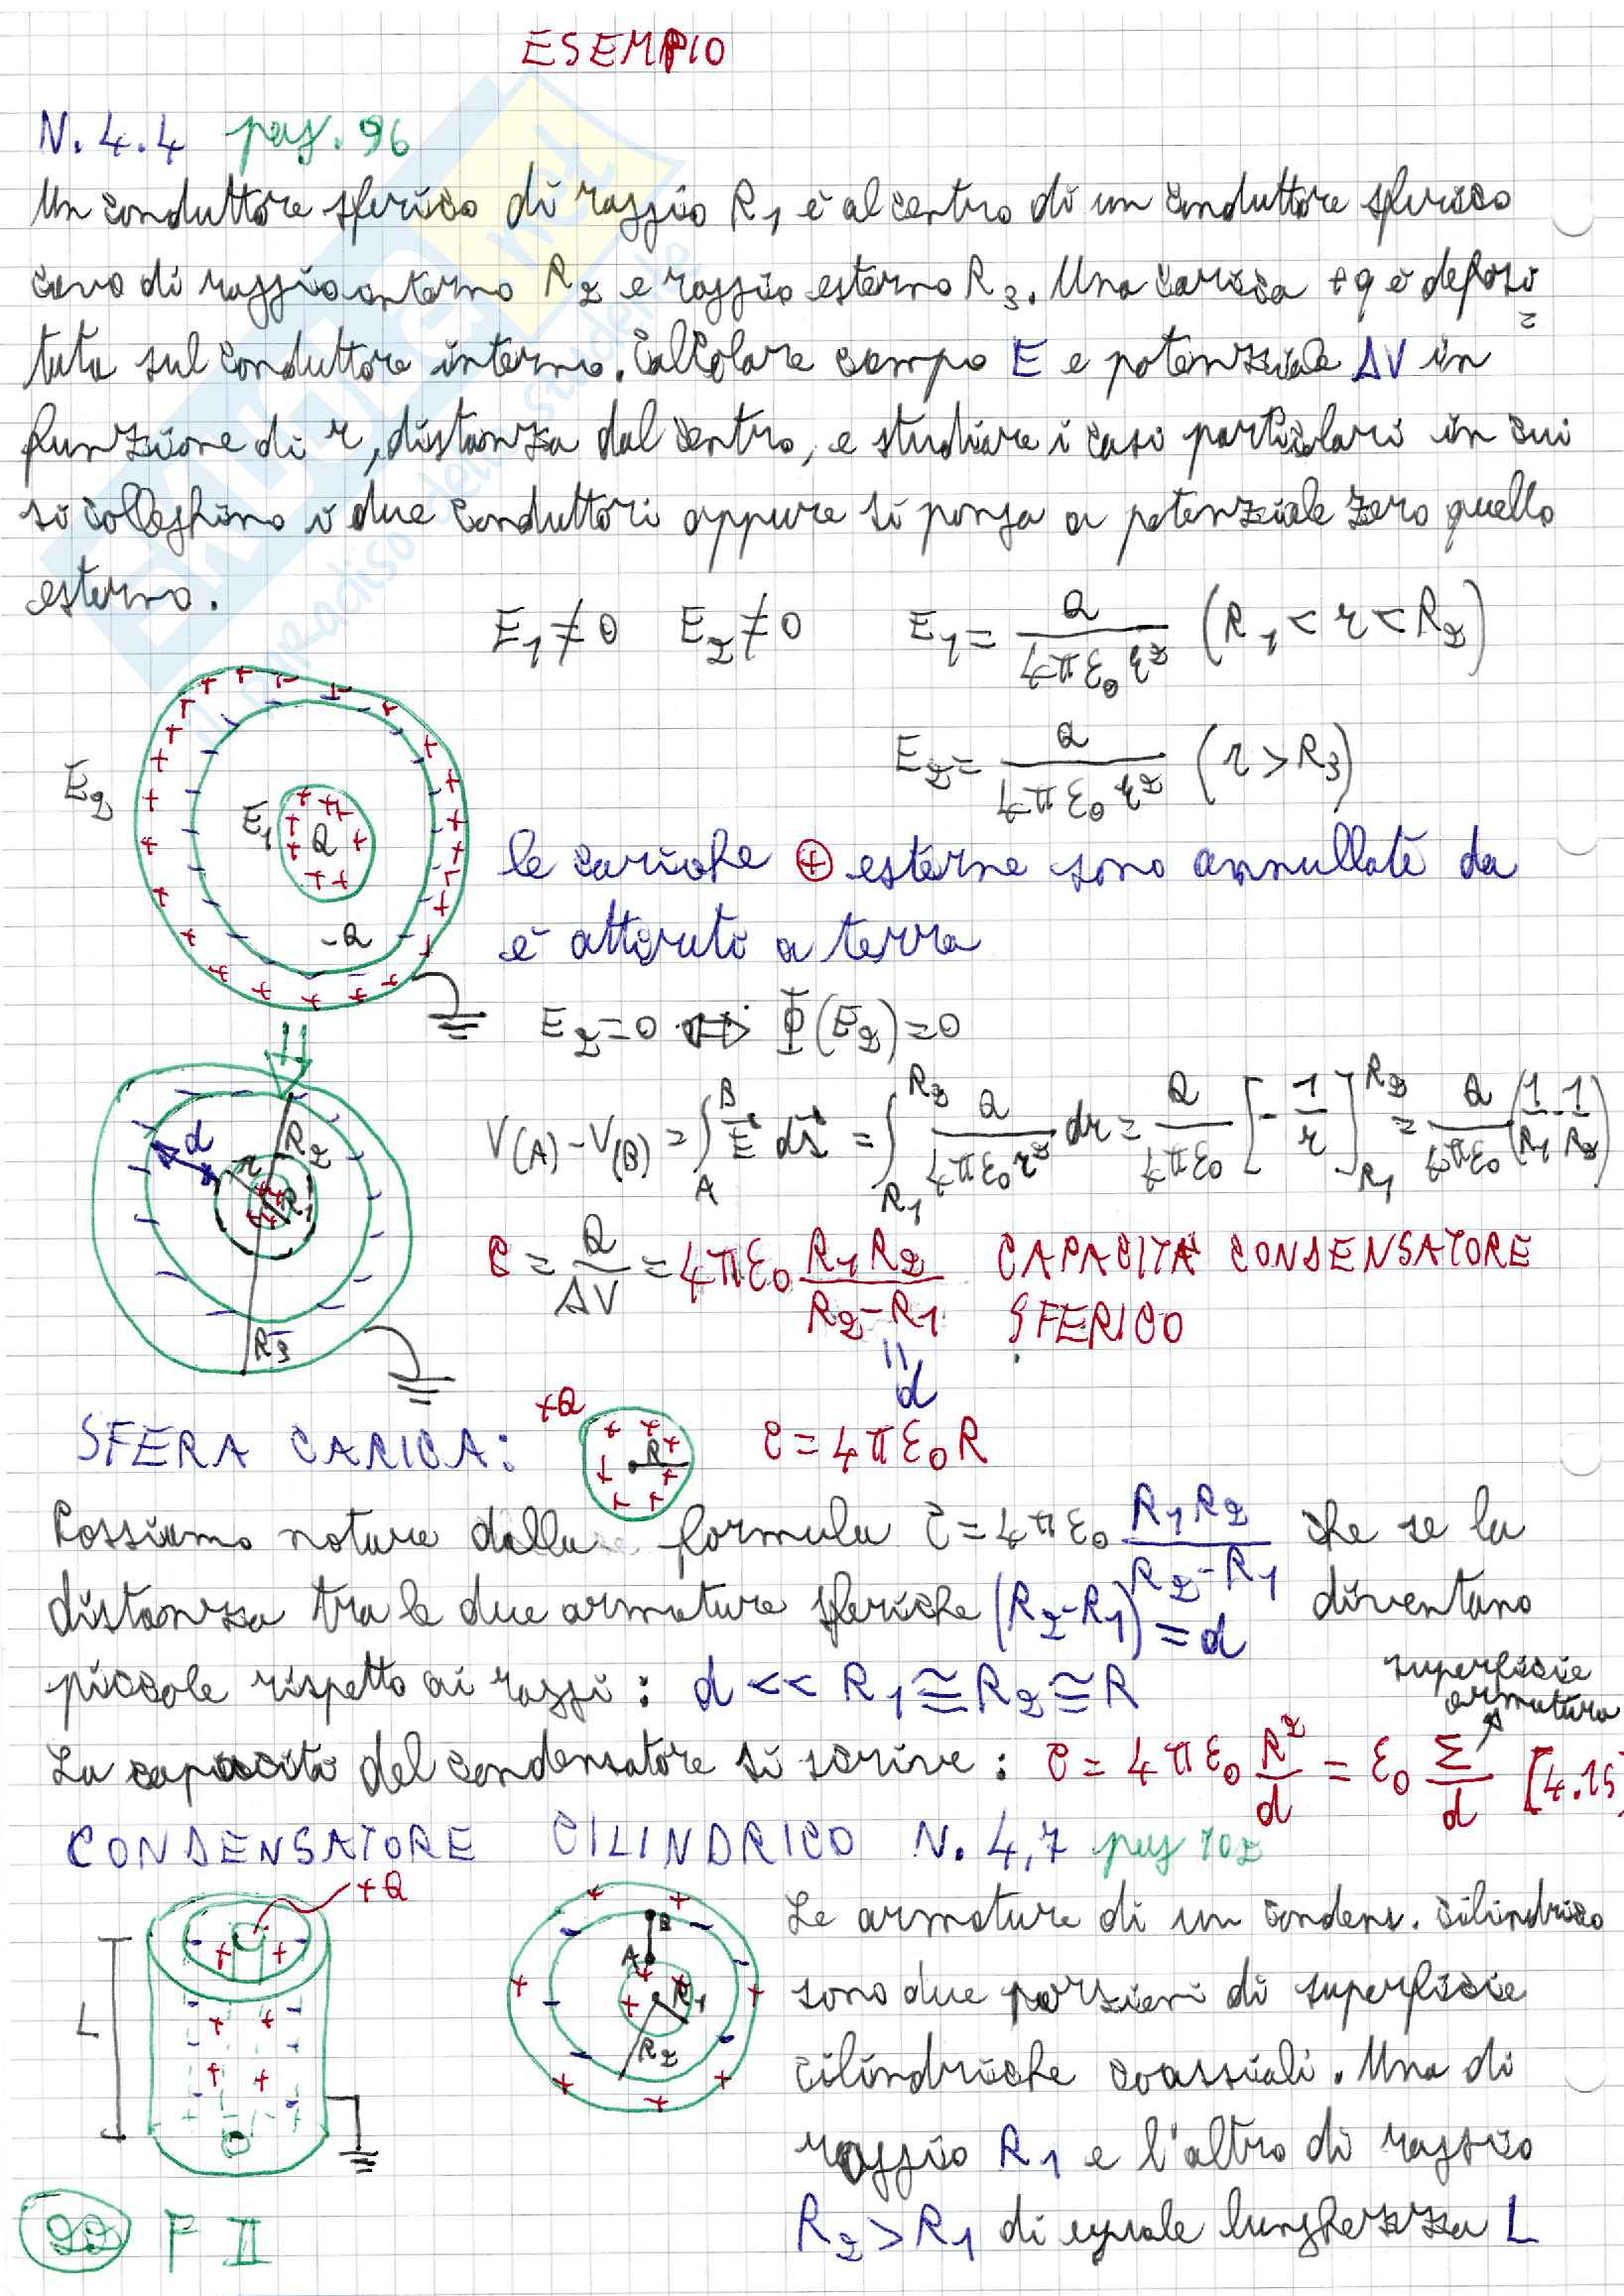 ESEMPIO
N. 4.4 pag. 96
Un conduttore sferico di raggio R₁ è al centro di un conduttore sferico
cavo di raggio interno R₂ e raggio esterno R₃. Una carica +q è deposi=
tata sul conduttore interno. Calcolare campo E e potenziale ΔV in
funzione di r, distanza dal centro, e studiare i casi particolari in cui
si colleghino i due conduttori oppure si ponga a potenziale zero quello
esterno.
E₁≠0 E₂≠0 E₁= Q/(4πε₀r²) (R₁<r<R₂)
E₂= Q/(4πε₀r²) (r>R₃)
E₂ E₁ Q -Q
le cariche ⊕ esterne sono annullate da
e⁻ attirati a terra
E₂=0 ⇔ Φ(E₂)=0
V(A)-V(B) = ∫_A^B E ds = ∫_R₁^R₂ Q/(4πε₀r²) dr = Q/(4πε₀) [-1/r]_R₁^R₂ = Q/(4πε₀) (1/R₁-1/R₂)
d r R₂ R₁ R₃
C = Q/ΔV = 4πε₀ R₁R₂/(R₂-R₁) CAPACITÀ CONDENSATORE
SFERICO
= d
SFERA CARICA: +Q R C=4πε₀R
Possiamo notare dalla formula C=4πε₀ R₁R₂/(R₂-R₁) che se la
distanza tra le due armature sferiche (R₂-R₁)=d diventano
piccole rispetto ai raggi: d<<R₁≅R₂≅R
superficie armatura
La capacità del condensatore si scrive: C= 4πε₀ R²/d = ε₀ Σ/d [4.15
CONDENSATORE CILINDRICO N. 4,7 pag 102
+Q
L
A B R₁ R₂
Le armature di un condens. cilindrico
sono due porzioni di superficie
cilindriche coassiali. Una di
raggio R₁ e l'altro di raggio
R₂>R₁ di eguale lunghezza L
22 F II